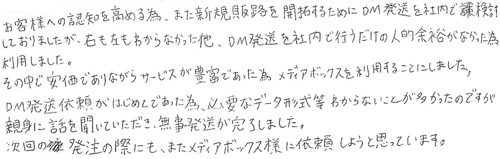 お客様への認知を高める為、また新規販路を開拓するためにDM発送を社内で議検討
しておりましたが、右も左もわからなかった他、DM発送を社内で行うだけの人的余裕がなかった為
利用しました。
その中で安価でありながらサービスが豊富であった為メディアボックスを利用することにしました。
DM発送依頼がはじめてであった為、必要なデータ形式等わからないことが多かったのですが
親身に話を聞いていただき、無事発送が完了しました。
次回の発注の際にも、またメディアボックス様に依頼しようと思っています。